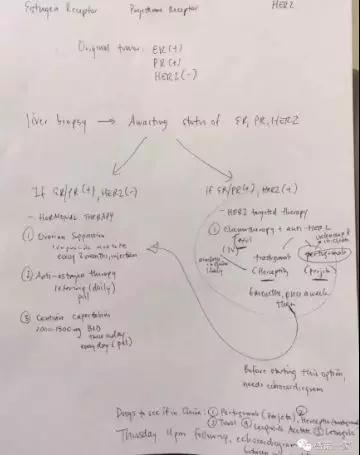 Estrogen Receptor Progesterone Receptor HER2
Original tumor: ER(+)
PR(+)
HER2(-)
liver biopsy → Awaiting status of ER, PR, HER2
If ER/PR(+), HER2(-)
- HORMONAL THERAPY
① Ovarian Suppression
every 3 months, injection
② Anti-estrogen therapy
letrozole (daily)
pill
③ Continue capecitabine
BID
twice a day
every day (pill)
If ER/PR(+), HER2(+)
- HER2 targeted therapy
① Chemotherapy + anti-HER2
(IV)
trastuzumab
pertuzumab
(Herceptin)
(Perjeta)
Before starting this option,
needs echocardiogram
Drugs to see if in China: ① Pertuzumab (Perjeta), ② Herceptin/trastuzumab
③ Taxol ④ Leuprolide Acetate ⑤ Letrozole
Thursday 4pm followup, echocardiogram